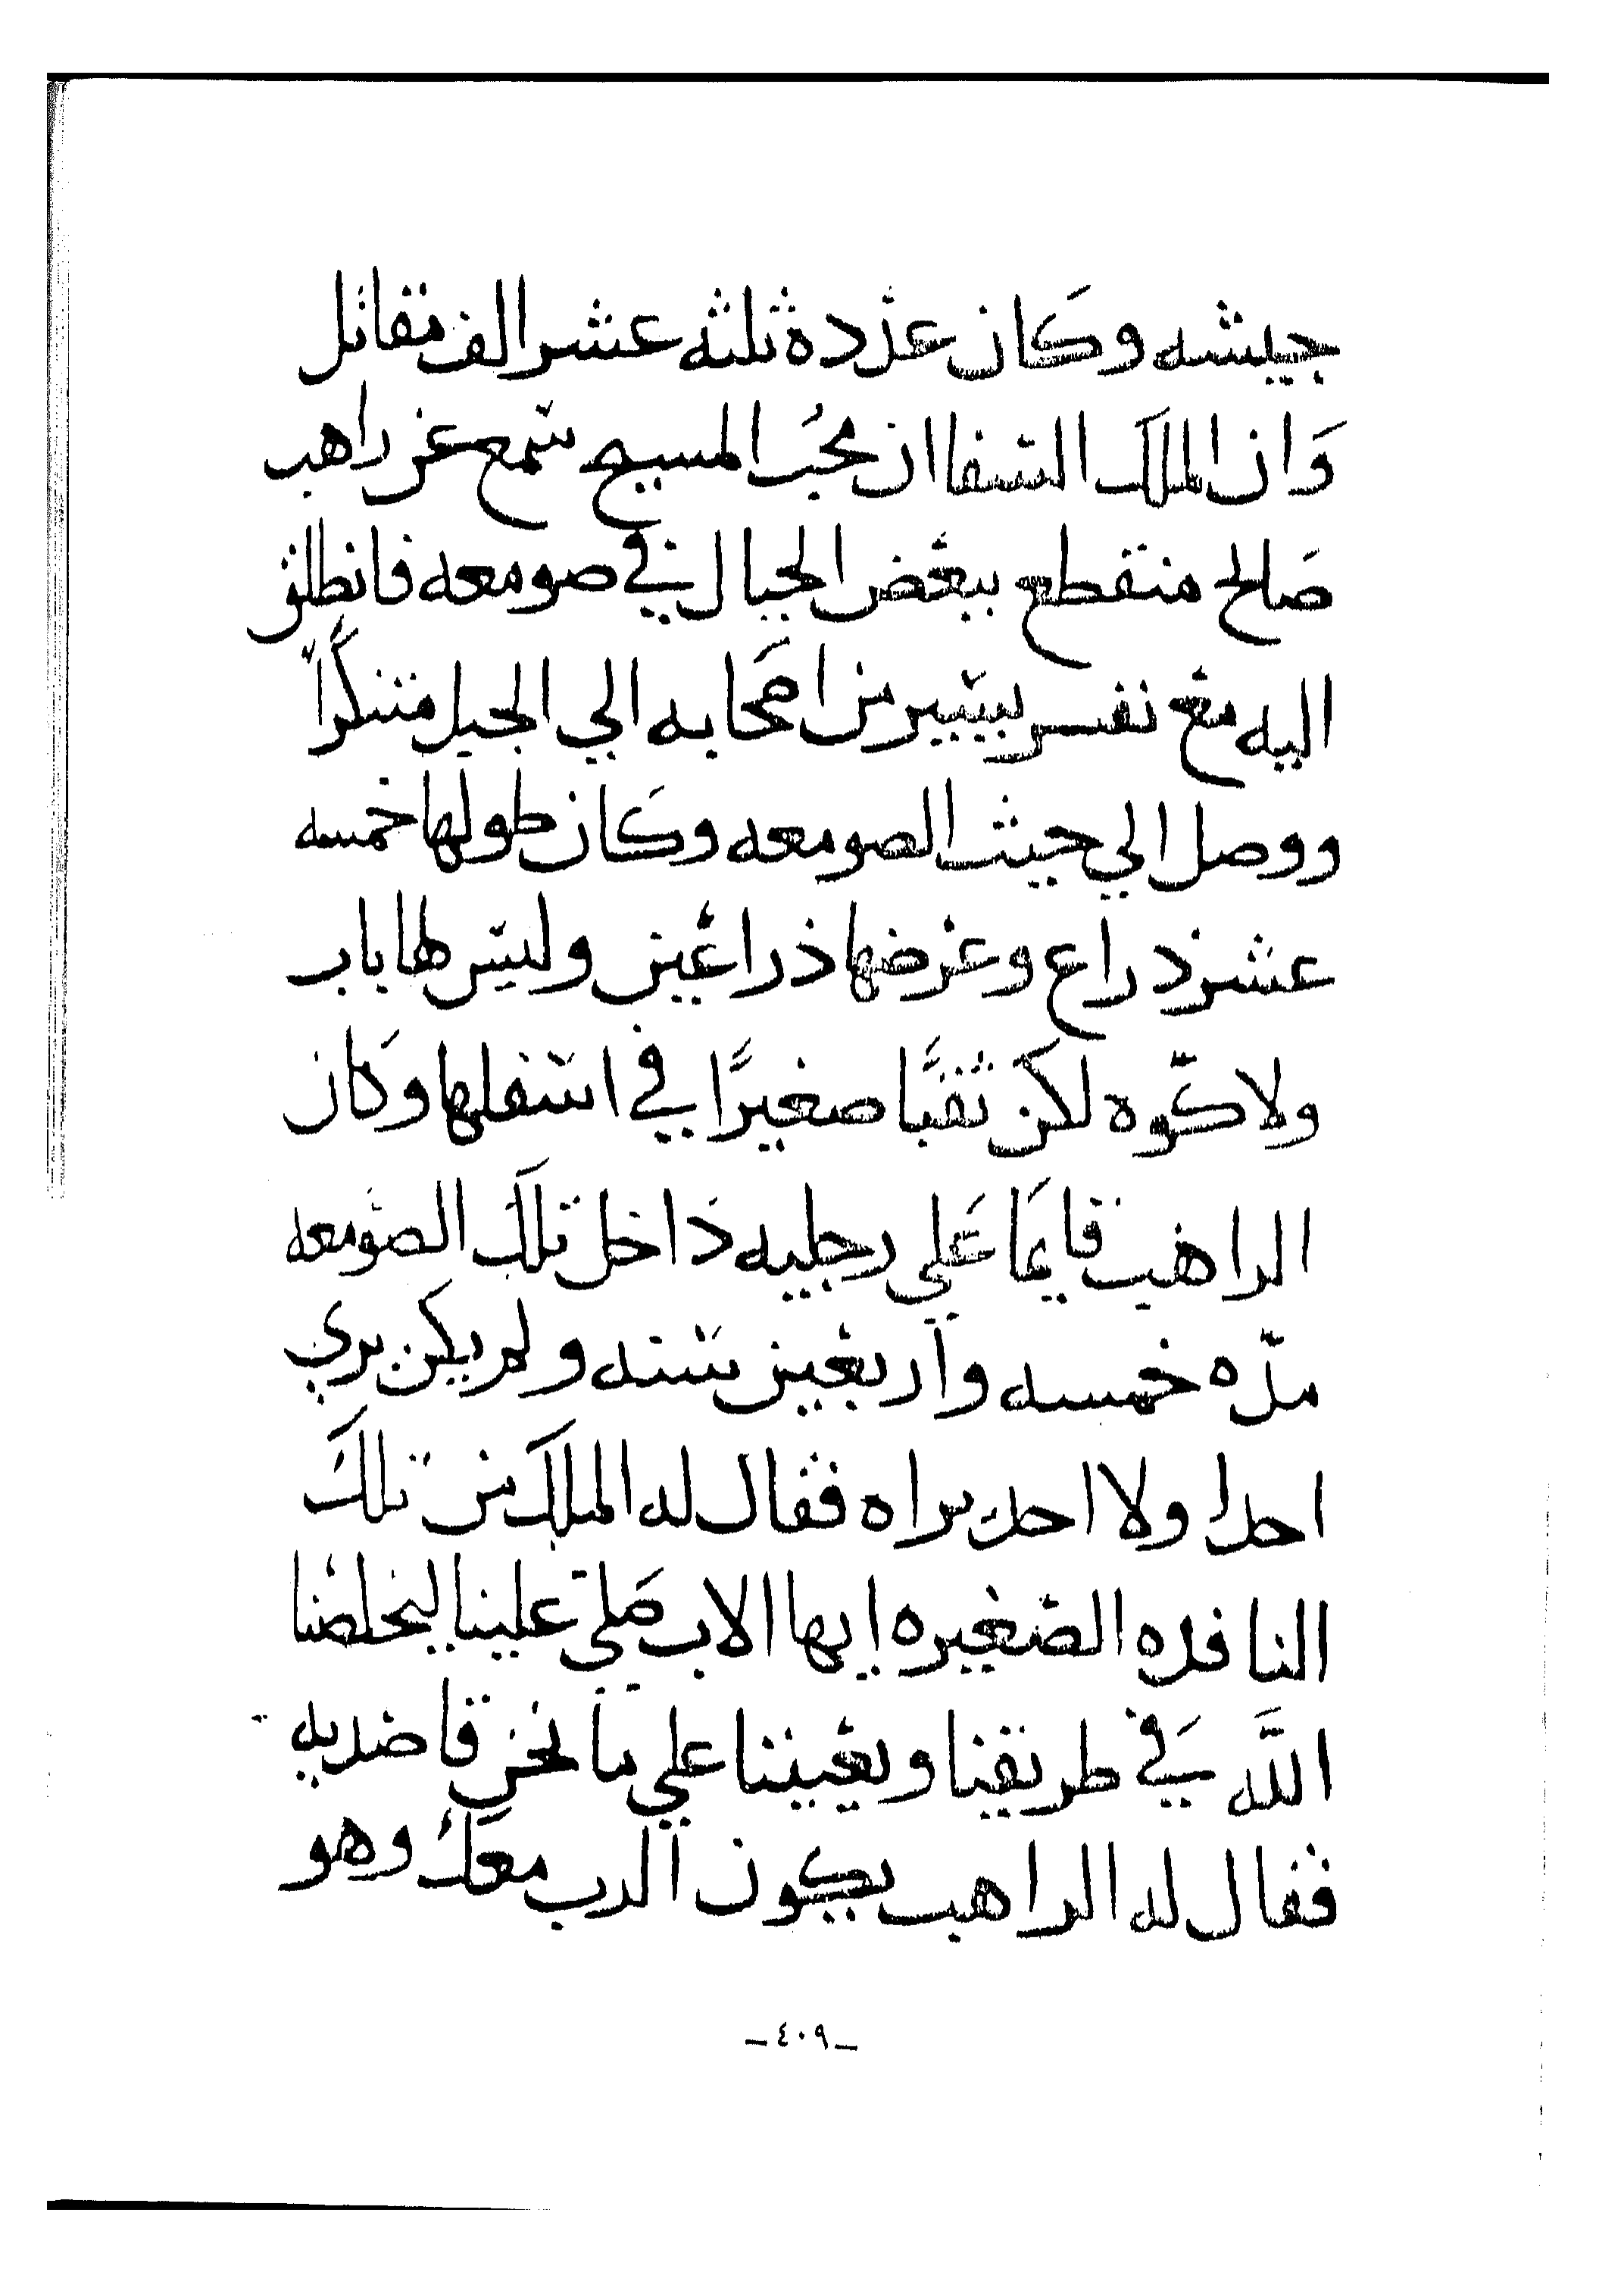 جيشه وكان عدده ثلثه عشر الف مقاتل
وان الملك الشفاان محب المسيح سمع عن راهب
صالح منقطع ببعض الجبال في صومعه فانطلق
اليه مع نفر يسير من اصحابه الي الجبل متنكراً
ووصل الي حيث الصومعه وكان طولها خمسه
عشر ذراع وعرضها ذراعين وليس لها باب
ولا كوّه لكن ثقبًا صغيرًا في اسفلها وكان
الراهب قايمًا علي رجليه داخل تلك الصومعه
مدّه خمسه واربعين سنه ولم يكن يري
احدا ولا احد يراه فقال له الملك من تلك
النافده الصغيره ايها الاب صلي علينا ليخلصنا
اللَّه في طريقنا ويعيننا علي ما نحن قاصديه
فقال له الراهب يكون الرب معك وهو
‫_٤٠٩_